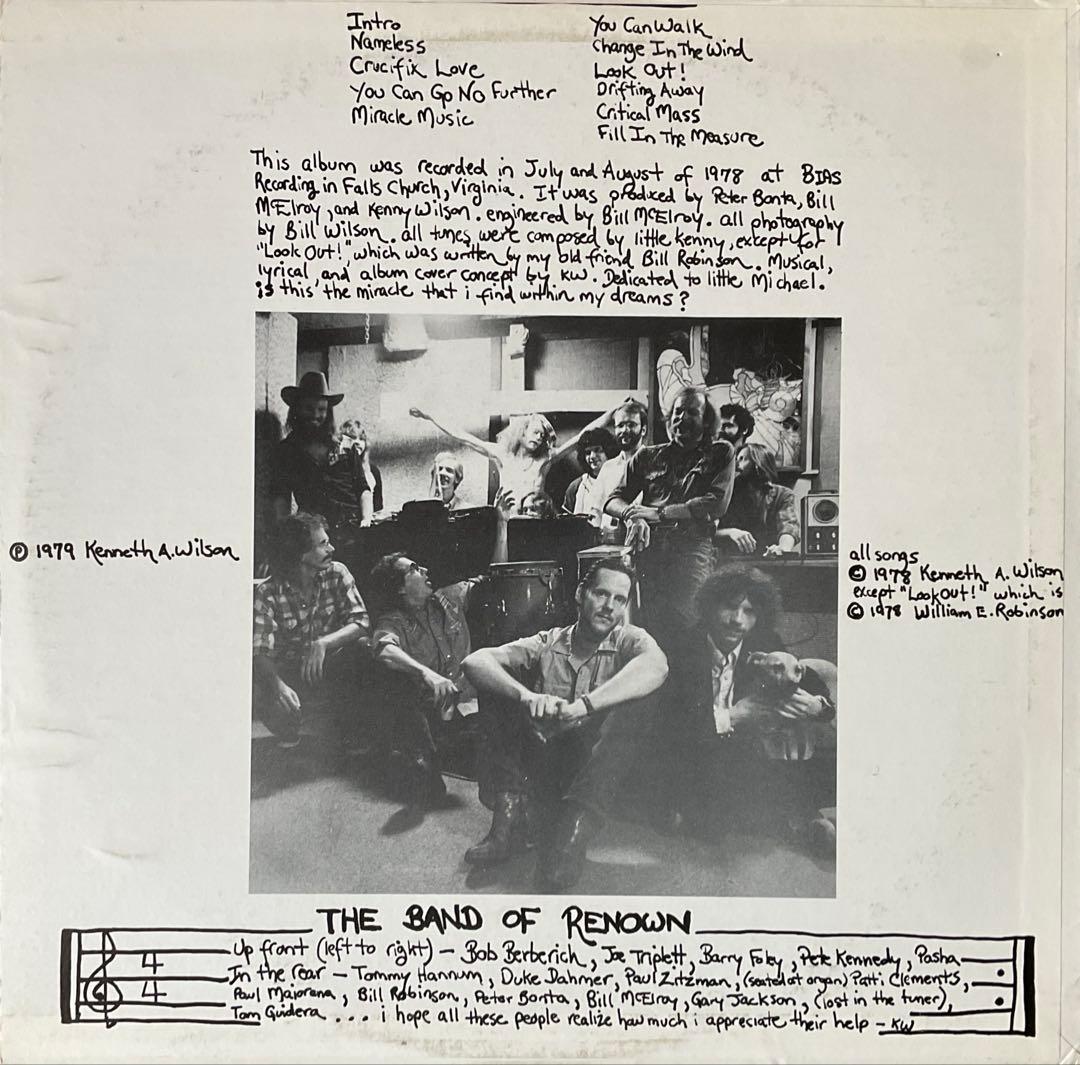 Intro
Nameless
Crucifix Love
You Can Go No Further
Miracle Music
You Can Walk
Change In The Wind
Look Out!
Drifting Away
Critical Mass
Fill In The Measure
This album was recorded in July and August of 1978 at BIAS
Recording in Falls Church, Virginia. It was produced by Peter Bonta, Bill
McElroy, and Kenny Wilson. engineered by Bill McElroy. all photography
by Bill Wilson. all tunes were composed by little kenny, except for
"Look Out!", which was written by my old friend Bill Robinson. Musical,
lyrical, and album cover concept by KW. Dedicated to little Michael.
is this the miracle that i find within my dreams?
℗ 1979 Kenneth A. Wilson
all songs
© 1978 Kenneth A. Wilson
except "Look Out!" which is
© 1978 William E. Robinson
THE BAND OF RENOWN
4
4
Up front (left to right) — Bob Berberich, Joe Triplett, Barry Foley, Pete Kennedy, Pasha
In the rear — Tommy Hannum, Duke Dahmer, Paul Zitzman, (seated at organ) Patti Clements,
Paul Majorana, Bill Robinson, Peter Bonta, Bill McElroy, Gary Jackson, (lost in the tuner),
Tom Guidera ... i hope all these people realize how much i appreciate their help — KW